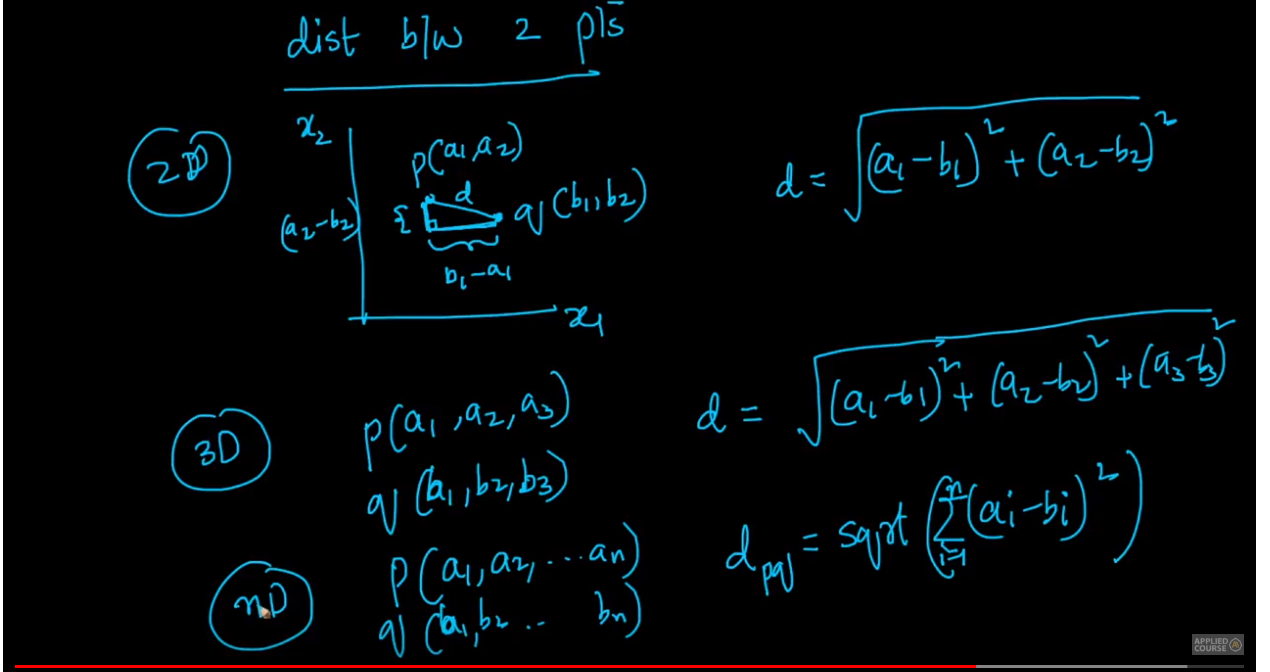 dist b/w 2 pts
2D
x₂
p(a₁,a₂)
d
q(b₁,b₂)
(a₂-b₂)
b₁-a₁
x₁
d = √((a₁-b₁)² + (a₂-b₂)²)
3D
p(a₁,a₂,a₃)
q(b₁,b₂,b₃)
d = √((a₁-b₁)² + (a₂-b₂)² + (a₃-b₃)²)
nD
P(a₁,a₂,...an)
q(b₁,b₂.. bn)
dpq = sqrt(∑ⁿᵢ₌₁(ai-bi)²)
APPLIED
COURSE